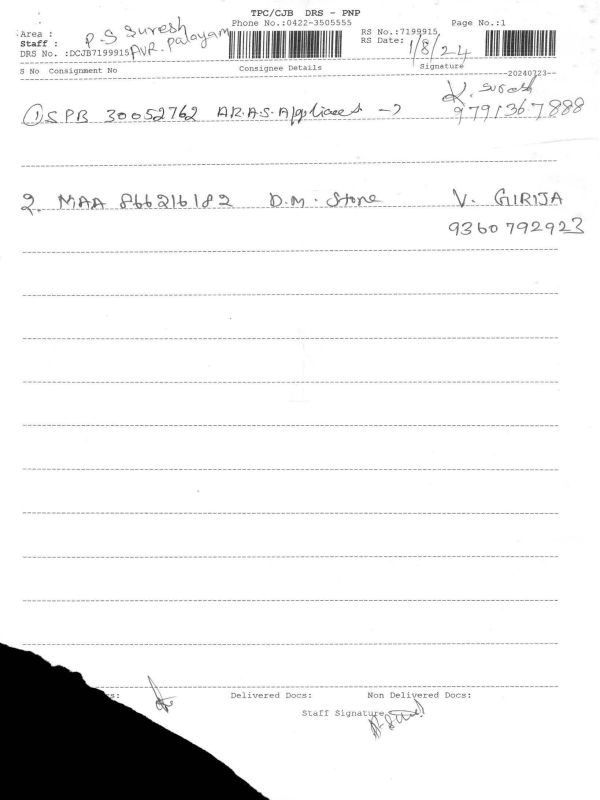 TPC/CJB DRS - PNP
Phone No.:0422-3505555 Page No.:1
Area :
Staff : P.S Suresh
RS No.:7199915
RS Date: 1/8/24
DRS No. :DCJB7199915 AVR. Palayam
S No Consignment No Consignee Details Signature
--20240723--
K. Suresh
① SPB 30052762 A.R.A.S. Appliances → 9791367888
2. MAA 866216182 D.M. Store V. GIRIJA
9360792923
s: Delivered Docs: Non Delivered Docs:
Staff Signature